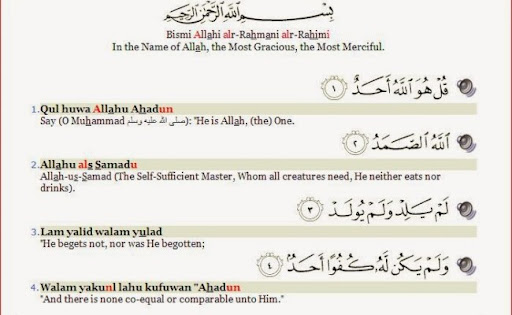 بِسْمِ اللَّهِ الرَّحْمَنِ الرَّحِيمِ
Bismi Allahi alr-Rahmani alr-Rahimi
In the Name of Allah, the Most Gracious, the Most Merciful.
قُلْ هُوَ اللَّهُ أَحَدٌ ١
1.Qul huwa Allahu Ahadun
Say (O Muhammad صلى الله عليه وسلم): "He is Allah, (the) One.
اللَّهُ الصَّمَدُ ٢
2.Allahu als Samadu
Allah-us-Samad (The Self-Sufficient Master, Whom all creatures need, He neither eats nor
drinks).
لَمْ يَلِدْ وَلَمْ يُولَدْ ٣
3.Lam yalid walam yulad
"He begets not, nor was He begotten;
وَلَمْ يَكُن لَّهُ كُفُوًا أَحَدٌ ٤
4.Walam yakunl lahu kufuwan "Ahadun
"And there is none co-equal or comparable unto Him."